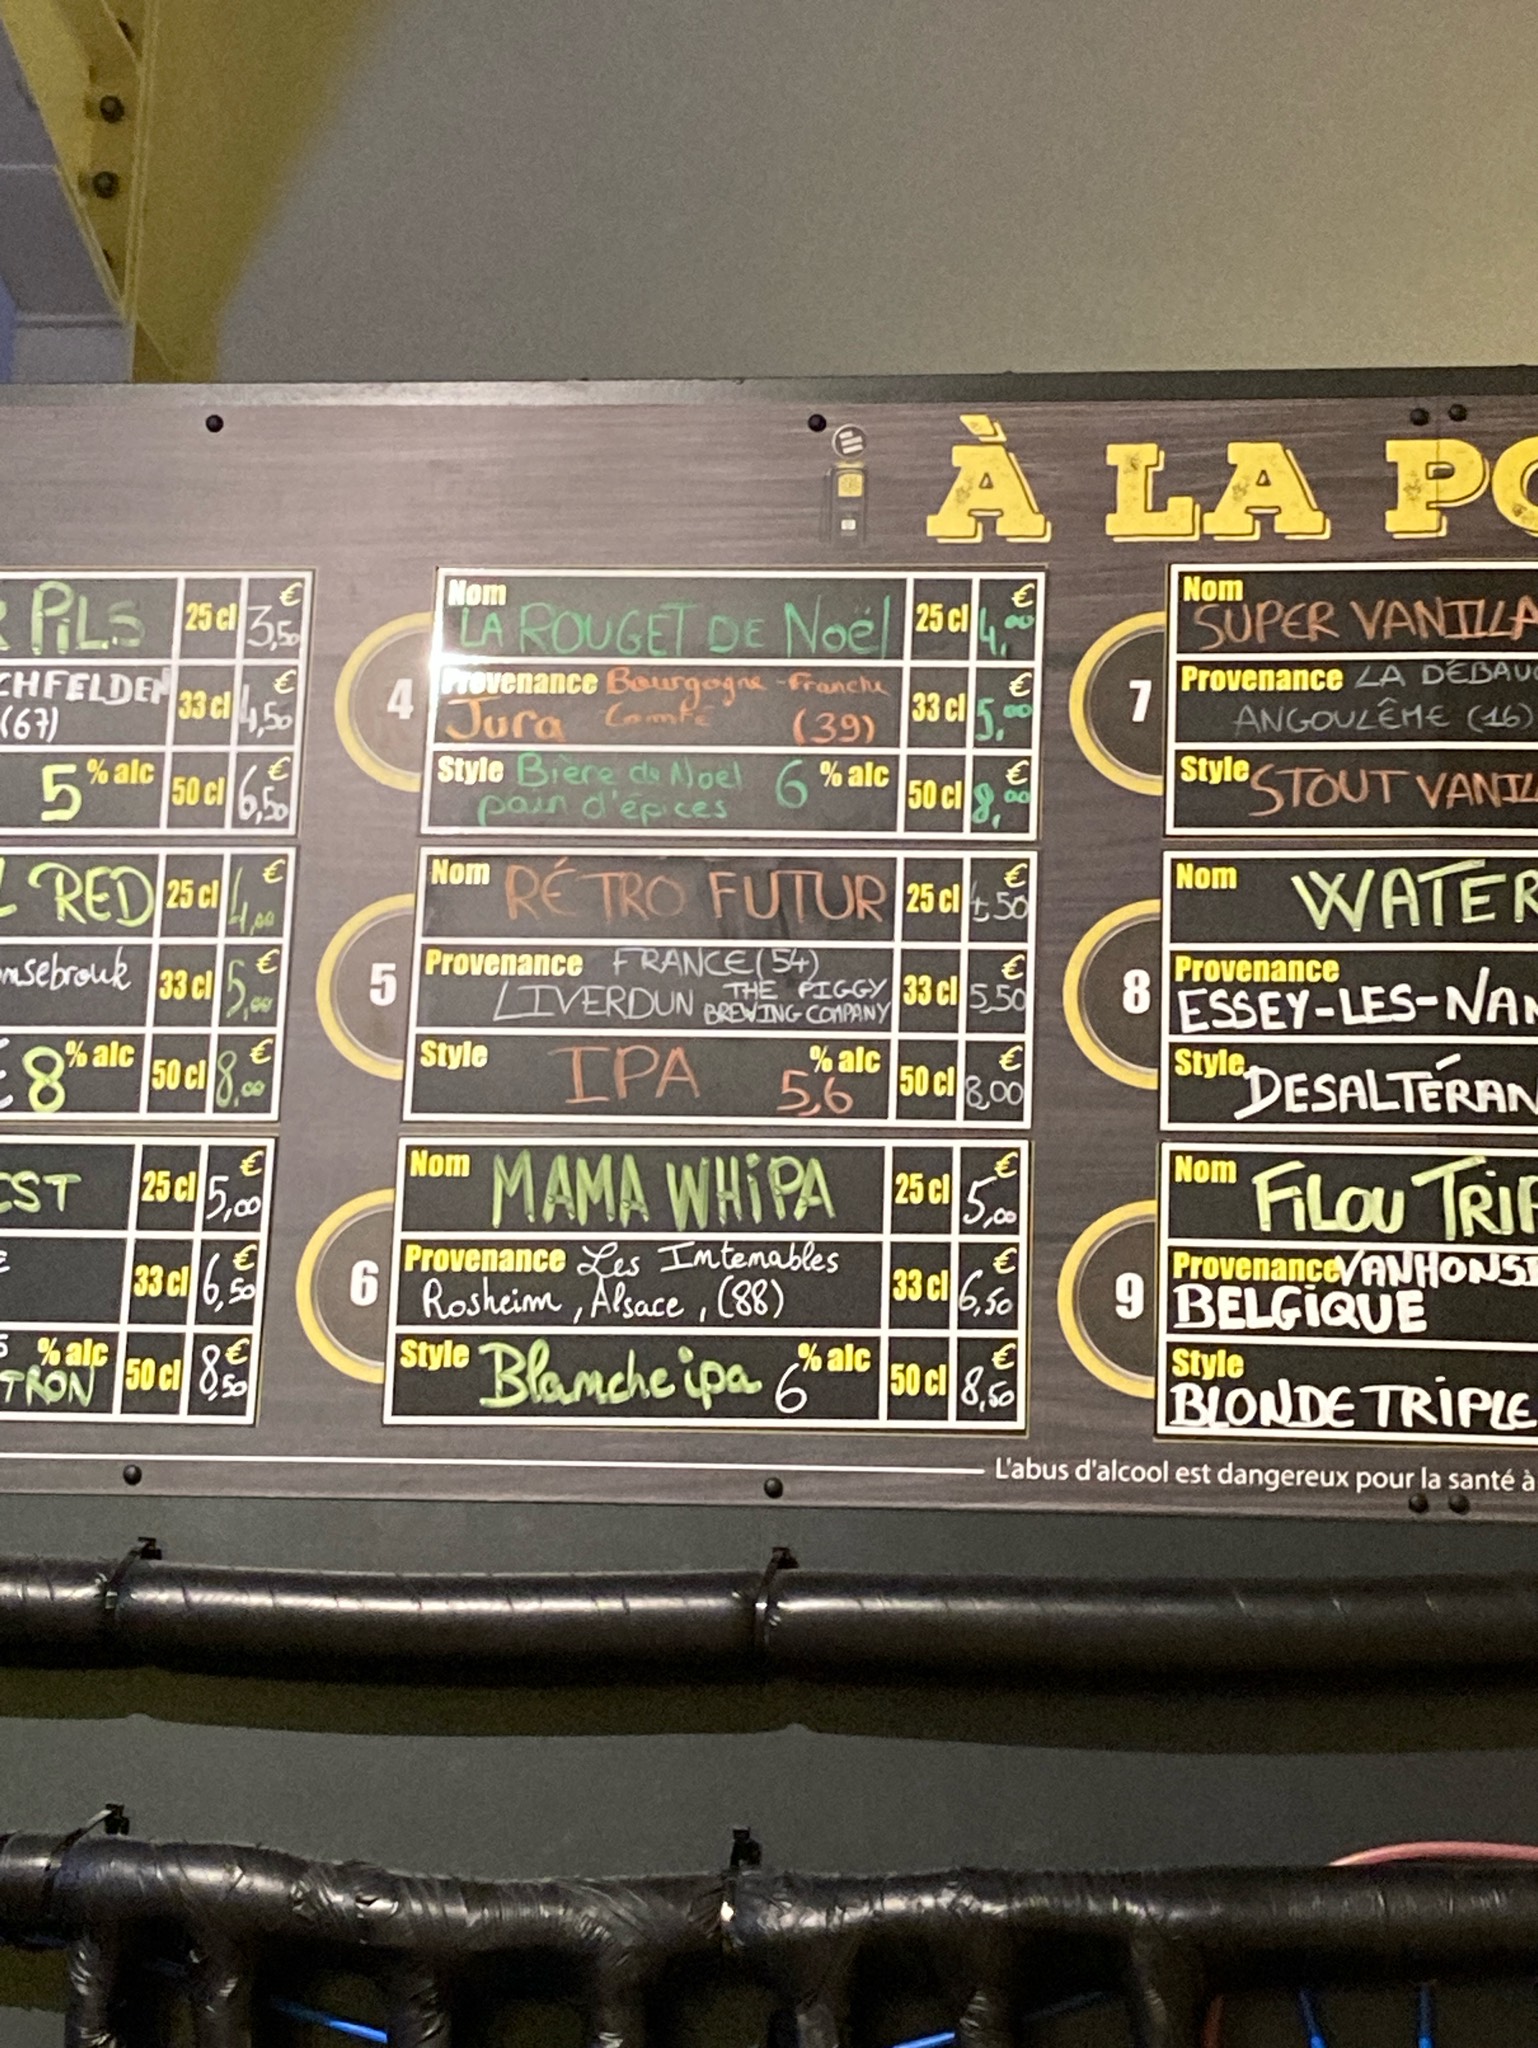 À LA PO
R PILS 25 cl € 3,50
CHFELDEN 33 cl € 4,50
(67)
5 % alc 50 cl € 6,50
L RED 25 cl € 4,00
msebrouk 33 cl € 5,00
E 8 % alc 50 cl € 8,00
EST 25 cl € 5,00
E 33 cl € 6,50
5 % alc
TRON 50 cl € 8,50
4
Nom
LA ROUGET DE Noël 25 cl € 4,00
Provenance Bourgogne-Franche
Jura Comté (39) 33 cl € 5,00
Style Bière de Noël
pain d'épices 6 % alc 50 cl € 8,00
5
Nom RÉTRO FUTUR 25 cl € 4,50
Provenance FRANCE (54)
LIVERDUN THE PIGGY
BREWING COMPANY 33 cl € 5,50
Style IPA 5,6 % alc 50 cl € 8,00
6
Nom MAMA WHIPA 25 cl € 5,00
Provenance Les Intenables
Rosheim, Alsace, (88) 33 cl € 6,50
Style Blanche ipa 6 % alc 50 cl € 8,50
7
Nom
SUPER VANILLA
Provenance LA DÉBAU
ANGOULÊME (16)
Style STOUT VANIL
8
Nom WATER
Provenance
ESSEY-LES-NAN
Style DESALTÉRAN
9
Nom FILOU TRIP
Provenance VANHONSE
BELGIQUE
Style
BLONDE TRIPLE
L'abus d'alcool est dangereux pour la santé à